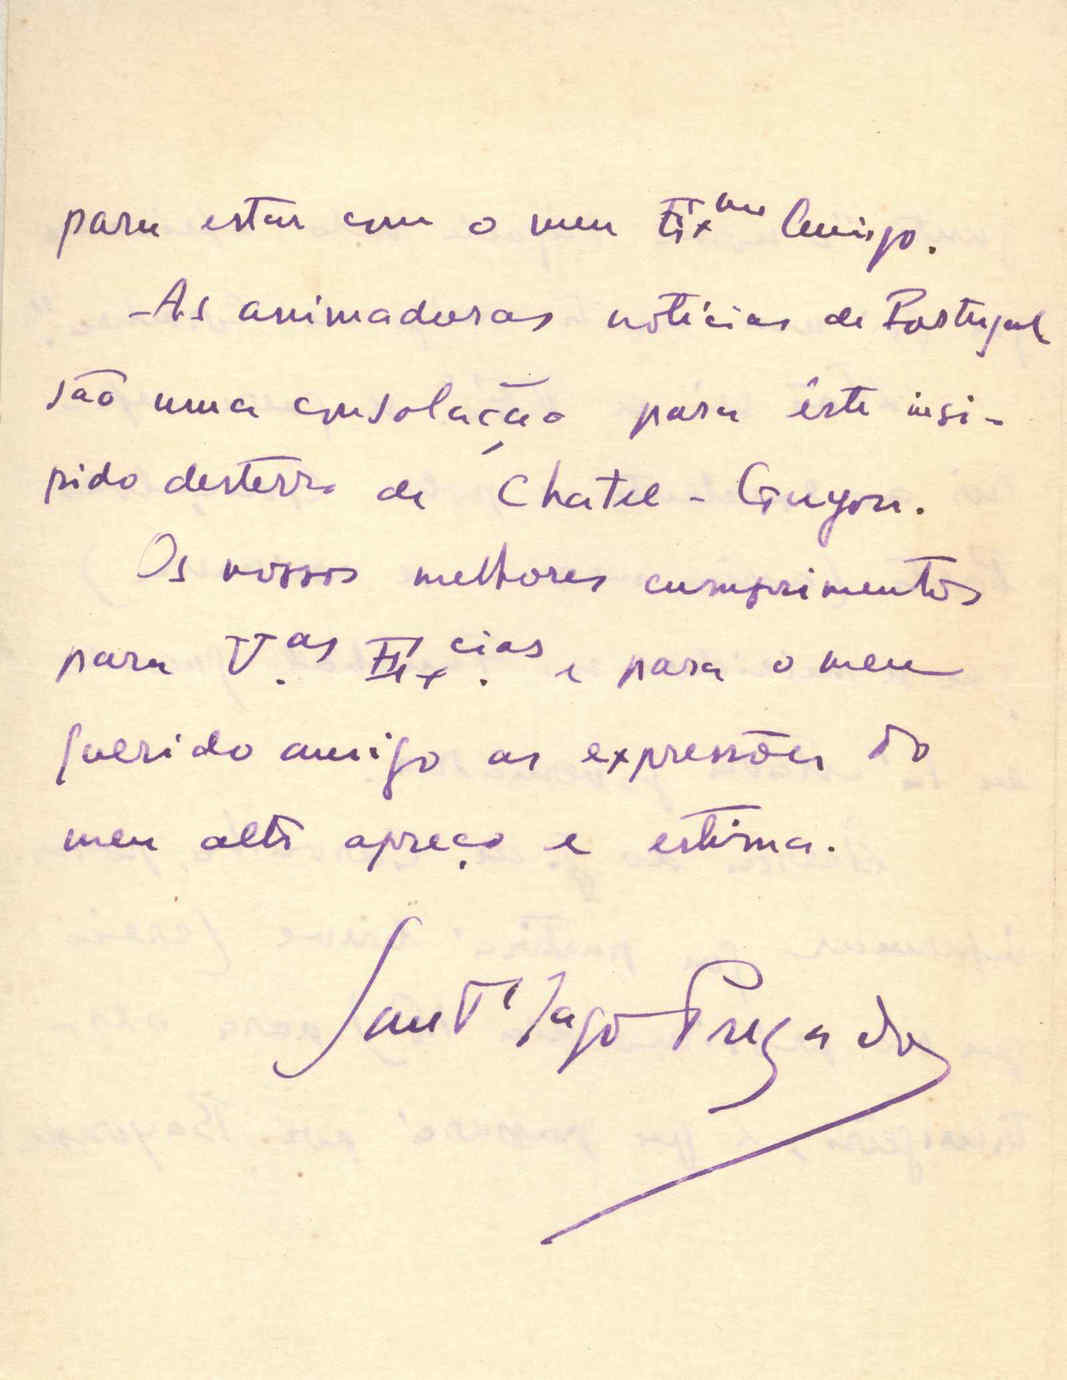 para estar com o meu Ex^mo Amigo.
- As animadoras notícias de Portugal
são uma consolação para êste insi-
pido desterro de Chatel - Guyon.
Os nossos melhores cumprimentos
para V.^as Ex.^cias e para o meu
querido amigo as expressões do
meu alto apreço e estima.
Sant'Iago Prezado